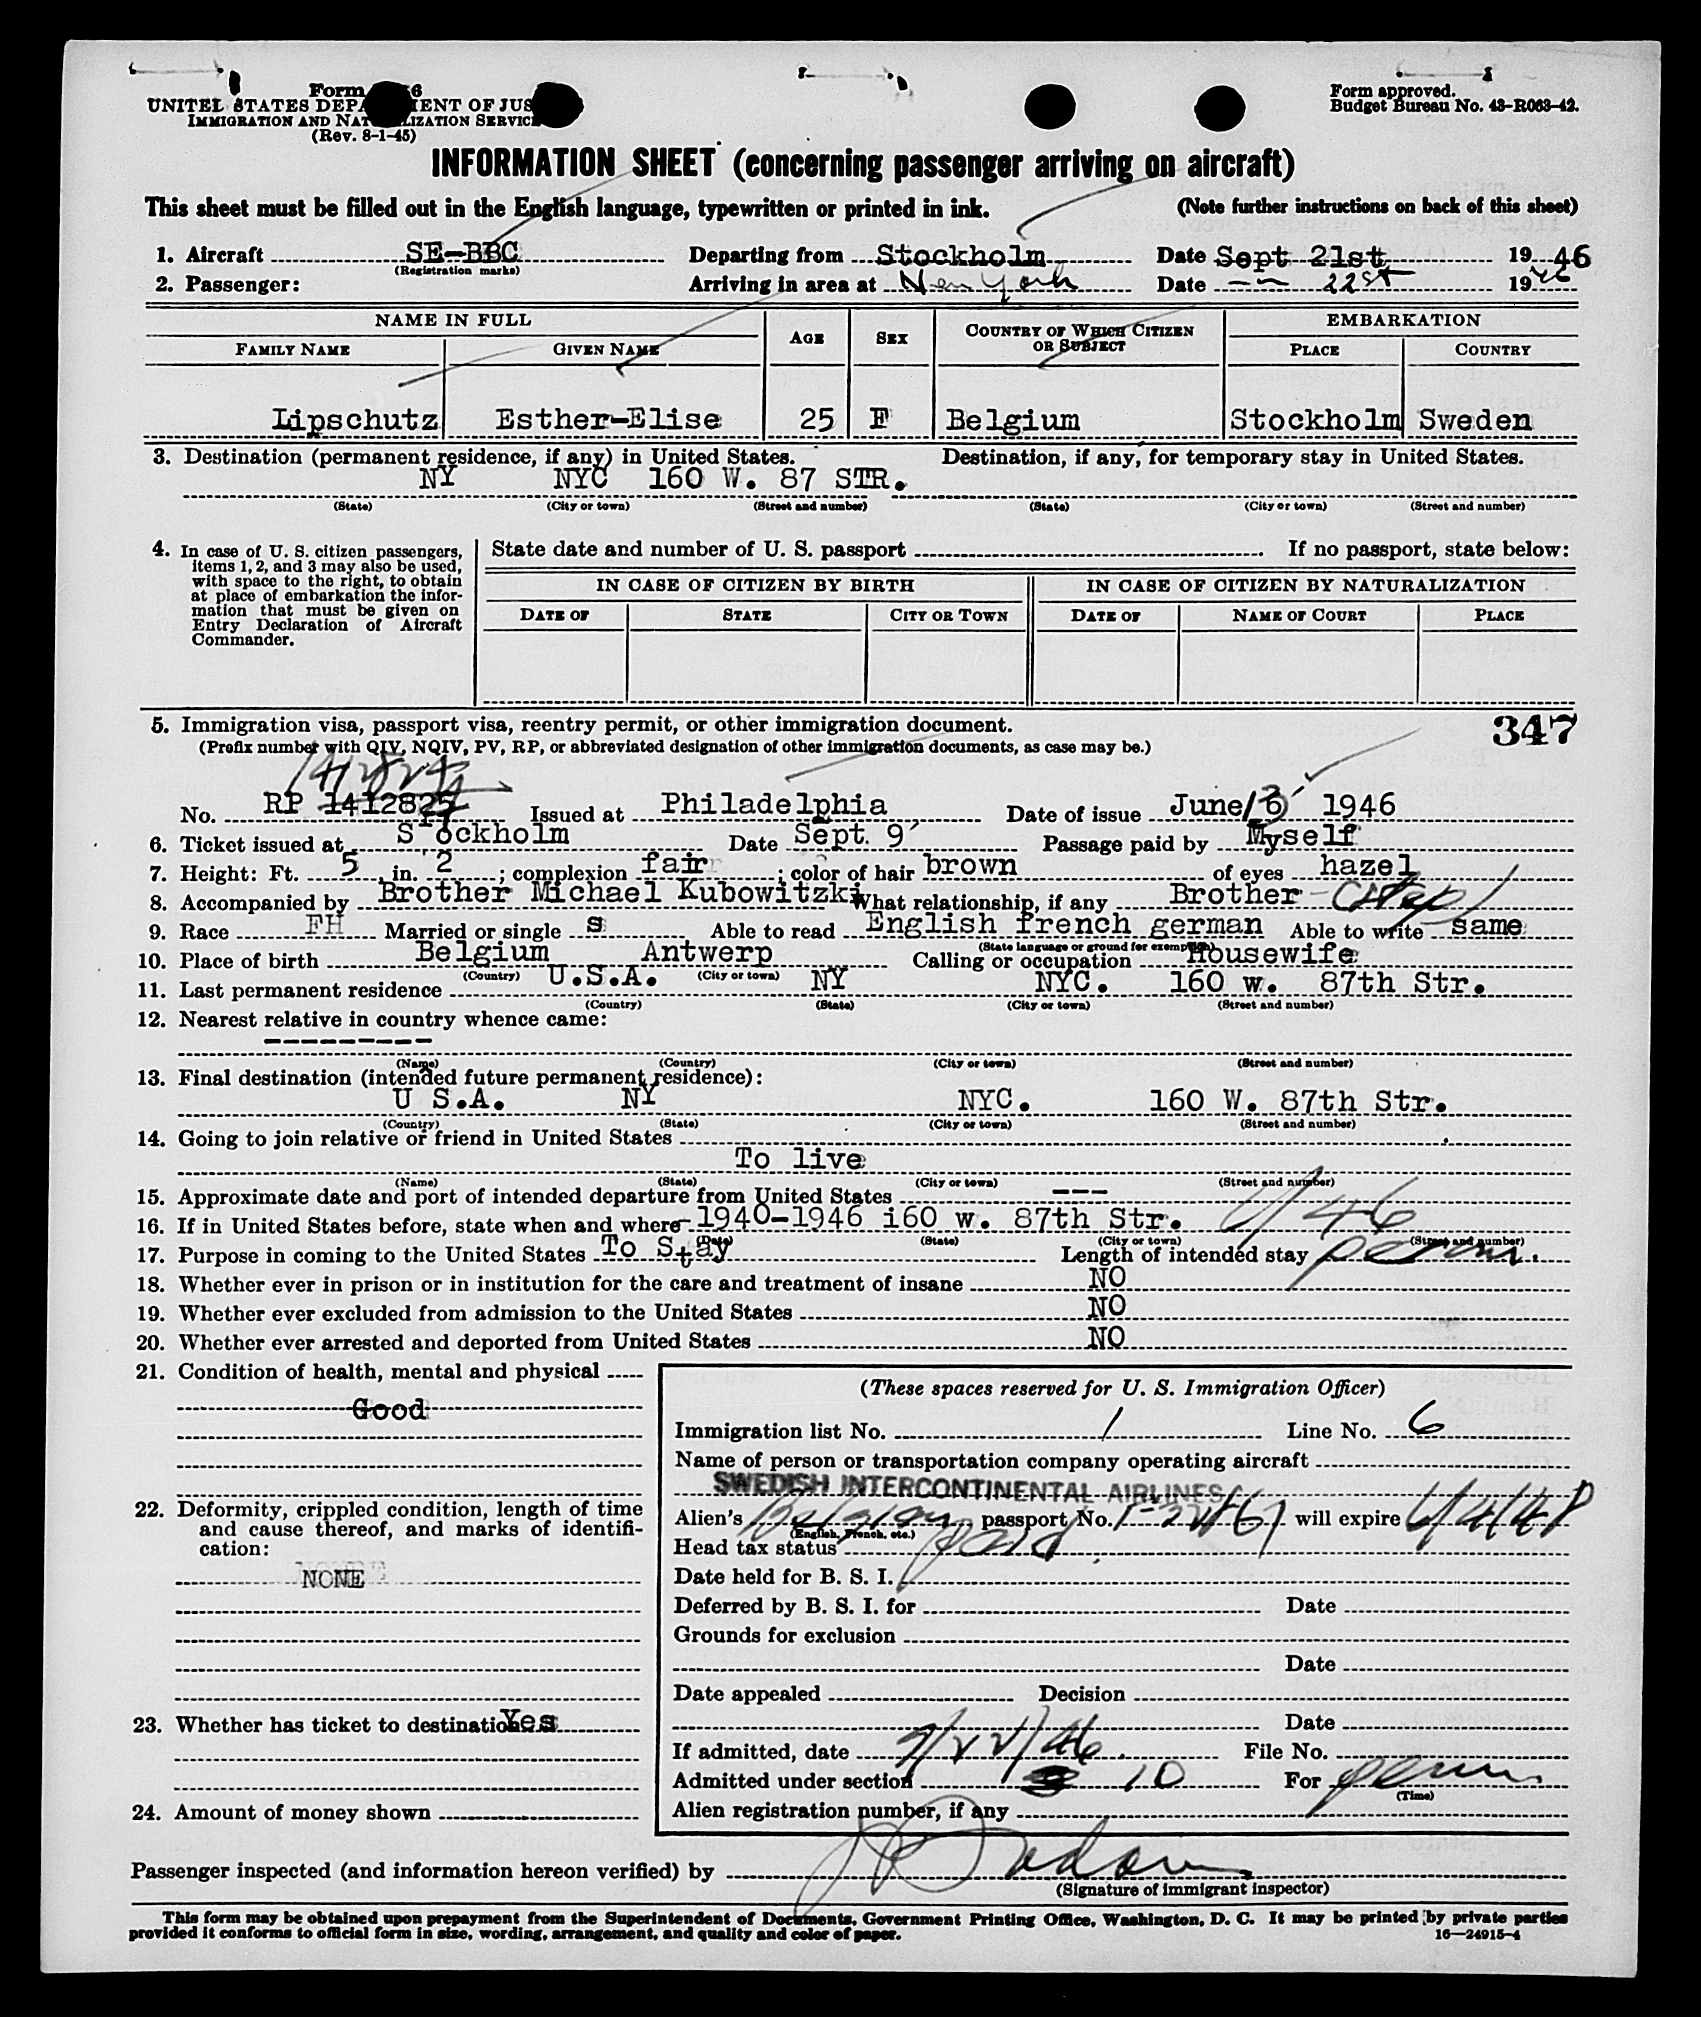 Form 6
UNITED STATES DEPA MENT OF JUS
IMMIGRATION AND NAT LIZATION SERVIC
(Rev. 8-1-45)
Form approved.
Budget Bureau No. 43-R063-42.
INFORMATION SHEET (concerning passenger arriving on aircraft)
This sheet must be filled out in the English language, typewritten or printed in ink. (Note further instructions on back of this sheet)
1. Aircraft SE-BBC Departing from Stockholm Date Sept 21st 1946
(Registration marks)
2. Passenger: Arriving in area at New York Date -- 22st 1946
NAME IN FULL AGE SEX COUNTRY OF WHICH CITIZEN OR SUBJECT EMBARKATION
FAMILY NAME GIVEN NAME PLACE COUNTRY
Lipschutz Esther-Elise 25 F Belgium Stockholm Sweden
3. Destination (permanent residence, if any) in United States. Destination, if any, for temporary stay in United States.
NY NYC 160 W. 87 STR.
(State) (City or town) (Street and number) (State) (City or town) (Street and number)
4. In case of U. S. citizen passengers, items 1, 2, and 3 may also be used, with space to the right, to obtain at place of embarkation the information that must be given on Entry Declaration of Aircraft Commander.
State date and number of U. S. passport . If no passport, state below:
IN CASE OF CITIZEN BY BIRTH IN CASE OF CITIZEN BY NATURALIZATION
DATE OF STATE CITY OR TOWN DATE OF NAME OF COURT PLACE
5. Immigration visa, passport visa, reentry permit, or other immigration document. 347
(Prefix number with QIV, NQIV, PV, RP, or abbreviated designation of other immigration documents, as case may be.)
No. RP Issued at Philadelphia Date of issue June 13 1946
6. Ticket issued at Stockholm Date Sept. 9 Passage paid by Myself
7. Height: Ft. 5, in. 2; complexion fair; color of hair brown of eyes hazel
8. Accompanied by Brother Michael Kubowitzki What relationship, if any Brother
9. Race FH Married or single s Able to read English french german Able to write same
(State language or ground for exemption)
10. Place of birth Belgium Antwerp Calling or occupation Housewife
(Country) (City or town)
11. Last permanent residence U.S.A. NY NYC. 160 w. 87th Str.
(Country) (State) (City or town) (Street and number)
12. Nearest relative in country whence came:
---------
(Name) (Country) (City or town) (Street and number)
13. Final destination (intended future permanent residence):
U S.A. NY NYC. 160 W. 87th Str.
(Country) (State) (City or town) (Street and number)
14. Going to join relative or friend in United States
To live
(Name) (State) (City or town) (Street and number)
15. Approximate date and port of intended departure from United States ---
16. If in United States before, state when and where 1940-1946 i60 w. 87th Str. 6/46
(State) (City or town) (Street and number)
17. Purpose in coming to the United States To Stay Length of intended stay perm.
18. Whether ever in prison or in institution for the care and treatment of insane NO
19. Whether ever excluded from admission to the United States NO
20. Whether ever arrested and deported from United States NO
21. Condition of health, mental and physical
Good
22. Deformity, crippled condition, length of time and cause thereof, and marks of identification:
NONE
23. Whether has ticket to destination Yes
24. Amount of money shown
(These spaces reserved for U. S. Immigration Officer)
Immigration list No. 1 Line No. 6
Name of person or transportation company operating aircraft
SWEDISH INTERCONTINENTAL AIRLINES
Alien's Belgian passport No. will expire 6/4/48
(English, French, etc.)
Head tax status paid
Date held for B. S. I.
Deferred by B. S. I. for Date
Grounds for exclusion
Date
Date appealed Decision
Date
If admitted, date 9/22/46. File No.
Admitted under section 10 For perm
(Time)
Alien registration number, if any
Passenger inspected (and information hereon verified) by
(Signature of immigrant inspector)
This form may be obtained upon prepayment from the Superintendent of Documents, Government Printing Office, Washington, D. C. It may be printed by private parties
provided it conforms to official form in size, wording, arrangement, and quality and color of paper. 16—24915-4